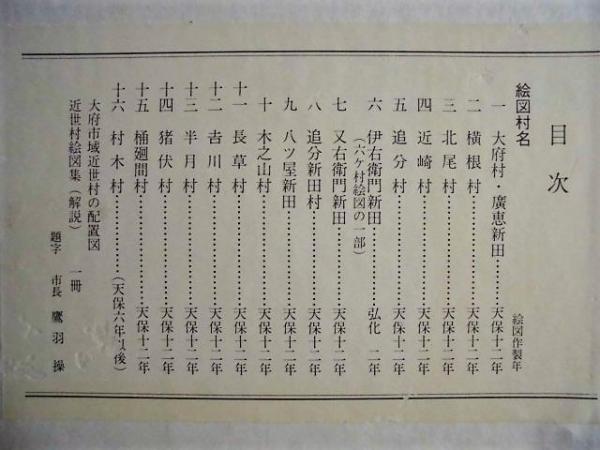 目次
絵図村名　絵図作製年
一　大府村・廣恵新田………天保十二年
二　横根村………天保十二年
三　北尾村………天保十二年
四　近崎村………天保十二年
五　追分村………天保十二年
六　伊右衛門新田………弘化二年
（六ケ村絵図の一部）
七　又右衛門新田………天保十二年
八　追分新田村………天保十二年
九　八ツ屋新田………天保十二年
十　木之山村………天保十二年
十一　長草村………天保十二年
十二　吉川村………天保十二年
十三　半月村………天保十二年
十四　猪伏村………天保十二年
十五　桶廻間村………天保十二年
十六　村木村………（天保六年以後）
大府市域近世村の配置図
近世村絵図集（解説）　一冊
題字　市長　鷹羽操